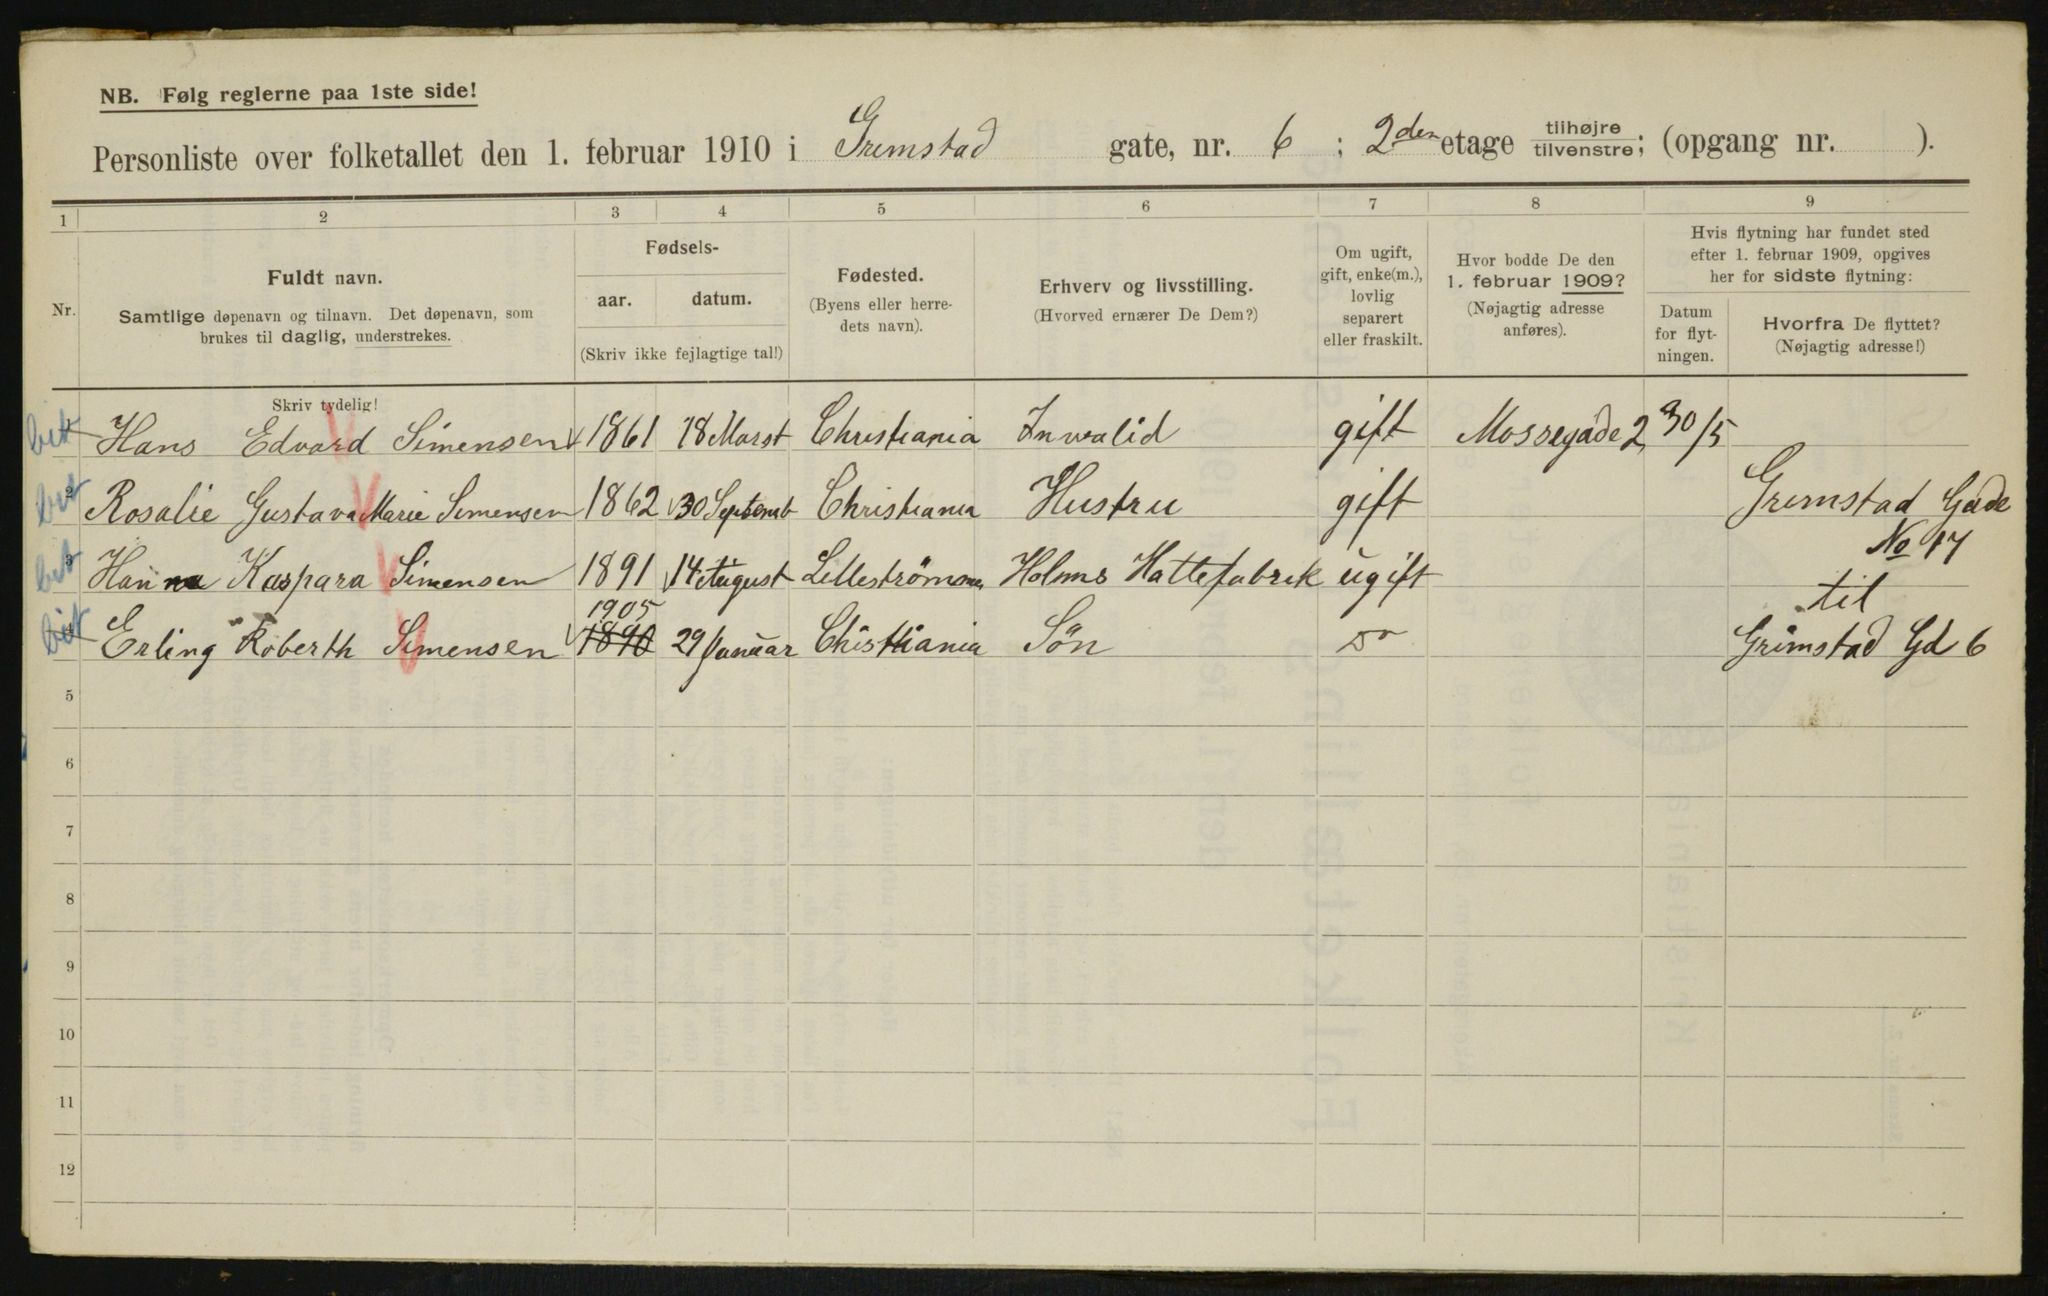 NB. Følg reglerne paa 1ste side!
Personliste over folketallet den 1. februar 1910 i Grimstad gate, nr. 6 ; 2den etage tilhøjre tilvenstre; (opgang nr. ).
1 2 3 4 5 6 7 8 9
Nr.
Fuldt navn.
Samtlige døpenavn og tilnavn. Det døpenavn, som
brukes til daglig, understrekes.
Skriv tydelig!
Fødsels-
aar. datum.
(Skriv ikke fejlagtige tal!)
Fødested.
(Byens eller herre-
dets navn).
Erhverv og livsstilling.
(Hvorved ernærer De Dem?)
Om ugift,
gift, enke(m.),
lovlig
separert
eller fraskilt.
Hvor bodde De den
1. februar 1909?
(Nøjagtig adresse
anføres).
Hvis flytning har fundet sted
efter 1. februar 1909, opgives
her for sidste flytning:
Datum
for flyt-
ningen.
Hvorfra De flyttet?
(Nøjagtig adresse!)
Hans Edvard Simensen 1861 18 Marst Christiania Invalid gift Mossegade 2 30/5
2 Rosalie Gustava Marie Simensen 1862 30 Septemb Christiania Hustru gift Grimstad Gade
No 17
3 Hanna Kaspara Simensen 1891 14 August Lelleströmmen Holms Hattefabrik ugift
til
1905
4 Erling Roberth Simensen 1890 29 Januar Chisttiania Sön Do Grimstad Gd 6
5
6
7
8
9
10
11
12